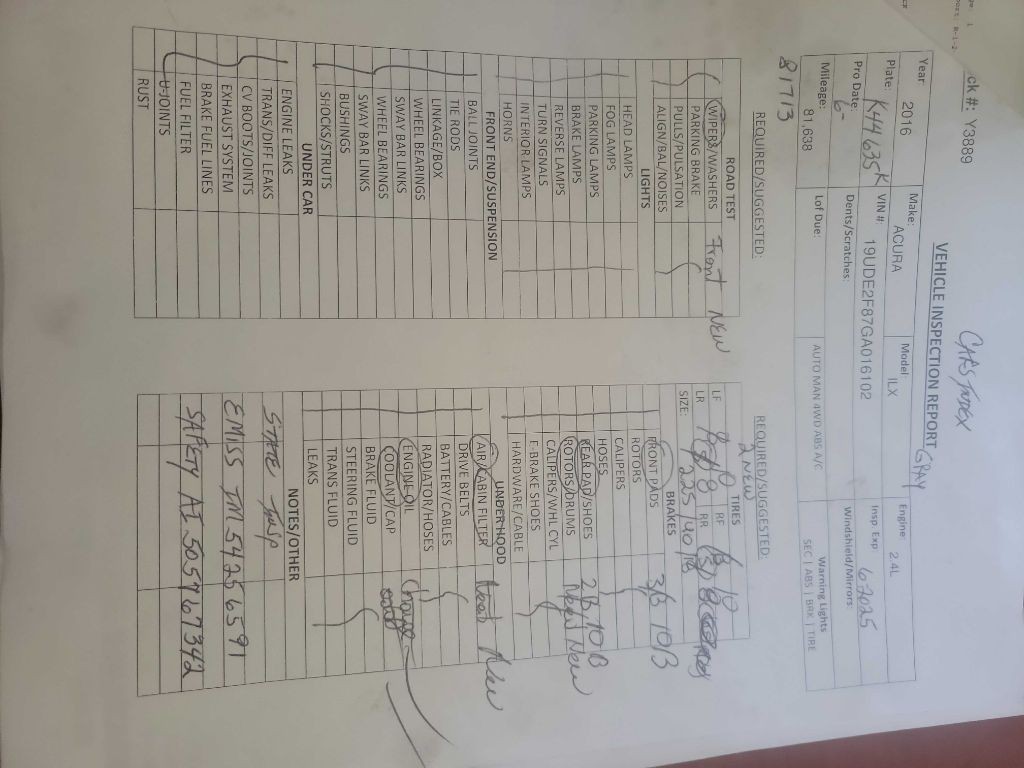 ck #: Y3889
VEHICLE INSPECTION REPORT
GRAY
Year 2016
Make: ACURA
Model ILX
Engine: 2.4L
Plate: K44635K
VIN #: 19UDE2F87GA016102
Insp Exp 6-2025
Pro Date: 6-
Dents/Scratches:
Windshield/Mirrors:
Mileage: 81,638
Lof Due:
AUTO MAN 4WD ABS A/C
Warning Lights
SEC | ABS | BRK | TIRE
81713
REQUIRED/SUGGESTED:
ROAD TEST
WIPERS/WASHERS Front NEW
PARKING BRAKE
PULLS/PULSATION
ALIGN/BAL/NOISES
LIGHTS
HEAD LAMPS
FOG LAMPS
PARKING LAMPS
BRAKE LAMPS
REVERSE LAMPS
TURN SIGNALS
INTERIOR LAMPS
HORNS
FRONT END/SUSPENSION
BALL JOINTS
TIE RODS
LINKAGE/BOX
WHEEL BEARINGS
SWAY BAR LINKS
WHEEL BEARINGS
SWAY BAR LINKS
BUSHINGS
SHOCKS/STRUTS
UNDER CAR
ENGINE LEAKS
TRANS/DIFF LEAKS
CV BOOTS/JOINTS
EXHAUST SYSTEM
BRAKE FUEL LINES
FUEL FILTER
U-JOINTS
RUST
REQUIRED/SUGGESTED:
2 NEW
TIRES
LF RF 10
LR 8 RR
SIZE: 225/40/18
BRAKES
FRONT PADS 3/B 10B
ROTORS
CALIPERS
HOSES
REAR PAD/SHOES 2B 10B
ROTORS/DRUMS Need New
CALIPERS/WHL CYL
E-BRAKE SHOES
HARDWARE/CABLE
UNDER HOOD
AIR/CABIN FILTER Need New
DRIVE BELTS
BATTERY/CABLES
RADIATOR/HOSES
ENGINE OIL Change
COOLANT/CAP
BRAKE FLUID
STEERING FLUID
TRANS FLUID
LEAKS
NOTES/OTHER
STATE INSP
EMISS IM 54256591
SAFETY AI 505967342